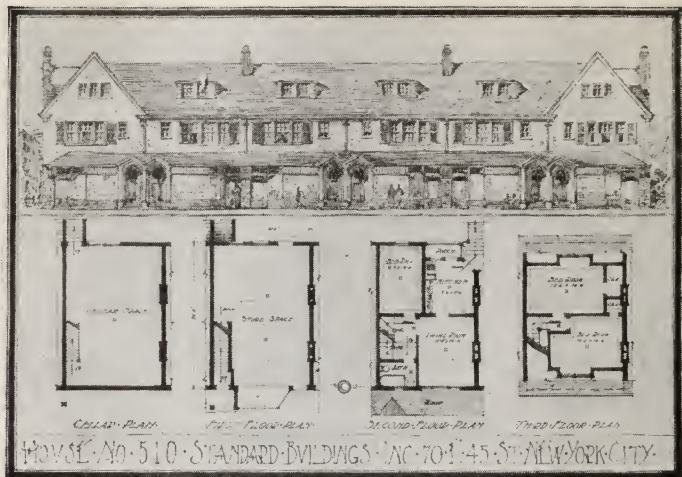 CELLAR SPACE
STORE SPACE
BED RM.
PORCH
KITCHEN
LIVING ROOM
BATH
ROOF
BED ROOM
BED ROOM
CELLAR·PLAN·
FIRST·FLOOR·PLAN
SECOND·FLOOR·PLAN
THIRD·FLOOR·PLAN
HOVSE·NO·510·STANDARD·BVILDINGS·INC·70·E·45·ST·NEW·YORK·CITY·